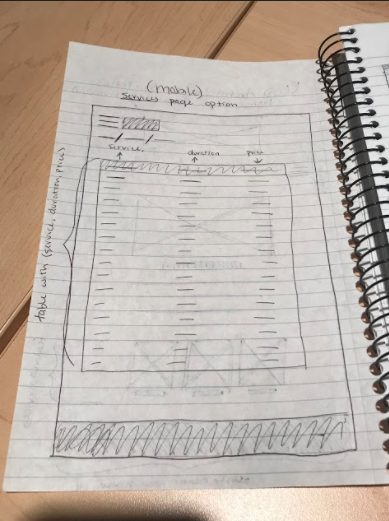 (mobile)
Services page option
service,
duration
price
table with (service, duration, price)